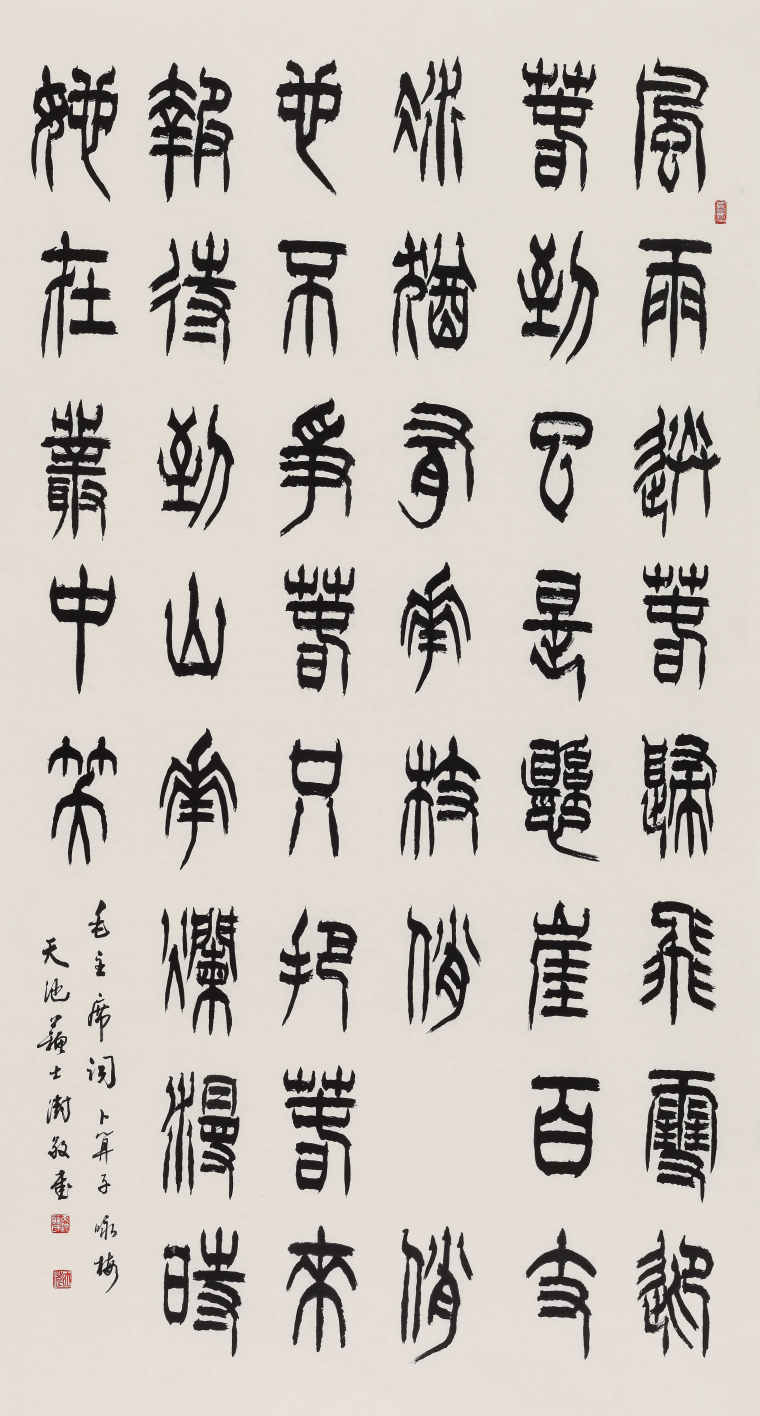 風雨送春歸飛雪迎
春到已是懸崖百丈
冰猶有華枝俏 俏
也不爭春只把春來
報待到山華爛漫時
她在叢中笑
毛主席詞卜算子 咏梅
天池蘇士澍敬書